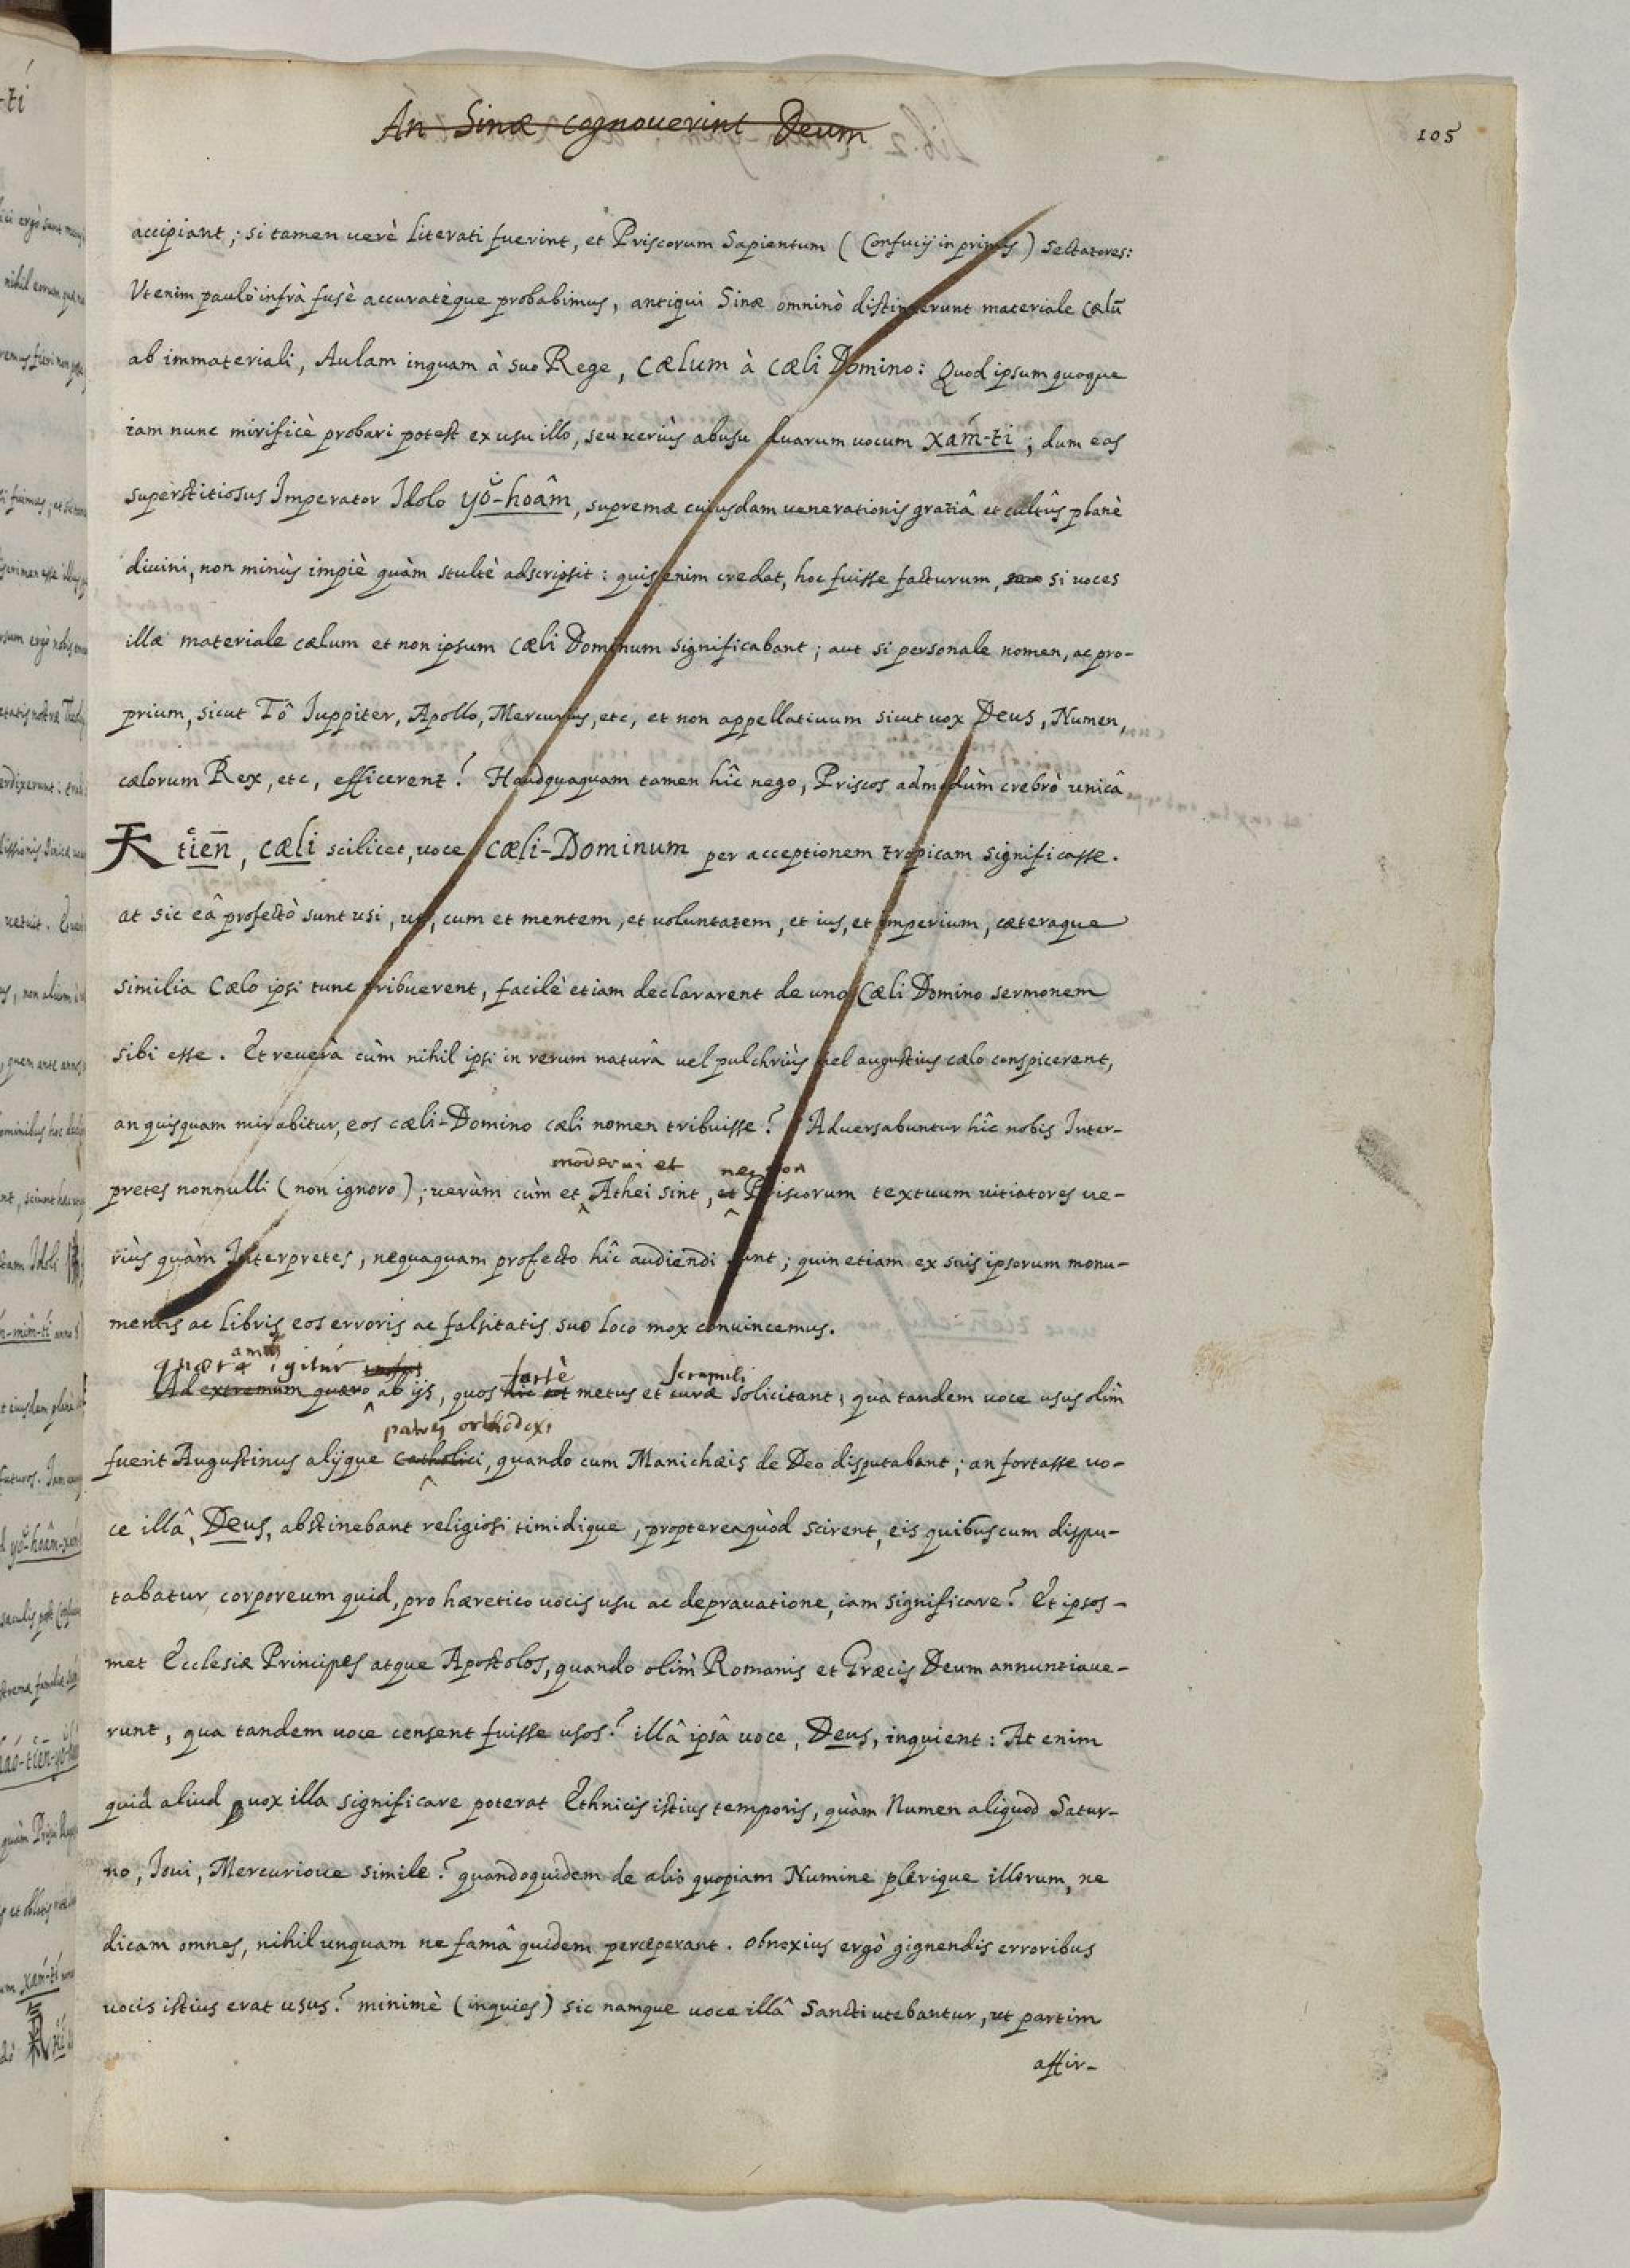 An Sinæ cognouerint Deum
105
accipiant; si tamen uerè literati fuerint, et Priscorum Sapientum (Confucij in primis) sectatores:
Vt enim paulò infrà fusè accuratèque probabimus, antiqui Sinæ omninò distinxerunt materiale cælū
ab immateriali, Aulam inquam à suo Rege, cælum à cæli Domino: Quod ipsum quoque
iam nunc mirificè probari potest ex usu illo, seu ueriùs abusu duarum uocum xám-tí; dum eas
superstitiosus Imperator Idolo yŏ-hoâm, supremæ cuiusdam uenerationis gratiâ et cultûs planè
diuini, non minùs impiè quàm stultè adscripsit: quis enim credat, hoc fuisse facturum, si uoces
illæ materiale cælum et non ipsum cæli Dominum significabant; aut si personale nomen, ac pro-
prium, sicut Tô Juppiter, Apollo, Mercurius, etc, et non appellatiuum sicut uox Deus, Numen,
cælorum Rex, etc, efficerent? Haudquaquam tamen hîc nego, Priscos admodùm crebrò unicâ
天 tiēn, cæli scilicet, uoce cæli-Dominum per acceptionem tropicam significasse.
at sic eâ profectò sunt usi, ut, cum et mentem, et uoluntatem, et ius, et imperium, cæteraque
similia Cælo ipsi tunc tribuerent, facilè etiam declararent de uno Cæli Domino sermonem
sibi esse. Et reuerà cùm nihil ipsi in rerum naturâ uel pulchriùs uel augustius cælo conspicerent,
an quisquam mirabitur, eos cæli-Domino cæli nomen tribuisse? Aduersabuntur hîc nobis Inter-
moderni et nec non
pretes nonnulli (non ignoro); uerùm cùm et Athei sint, et Priscorum textuum uitiatores ue-
riùs quàm Interpretes, nequaquam profecto hîc audiendi sunt; quin etiam ex suis ipsorum monu-
mentis ac libris eos erroris ac falsitatis suo loco mox conuincemus.
quæramus igitur fortè scrupuli
Ad extremum quæro ab ijs, quos hic tot metus et curæ solicitant; quâ tandem uoce usus olim
patres orthodoxi
fuerit Augustinus alijque catholici, quando cum Manichæis de Deo disputabant; an fortasse uo-
ce illâ, Deus, abstinebant religiosi timidique, proptereaquòd scirent, eis quibuscum dispu-
tabatur, corporeum quid, pro hæretico uocis usu ac deprauatione, iam significare? Et ipsos-
met Ecclesiæ Principes atque Apostolos, quando olim Romanis et Græcis Deum annuntiaue-
runt, qua tandem uoce censent fuisse usos? illâ ipsâ uoce, Deus, inquient: At enim
quid aliud uox illa significare poterat Ethnicis istius temporis, quàm Numen aliquod Satur-
no, Joui, Mercurioue simile? quandoquidem de alio quopiam Numine plerique illorum, ne
dicam omnes, nihil unquam ne famâ quidem perceperant. obnoxius ergò gignendis erroribus
uocis istius erat usus? minimè (inquies) sic namque uoce illâ Sancti utebantur, ut partim
affir-